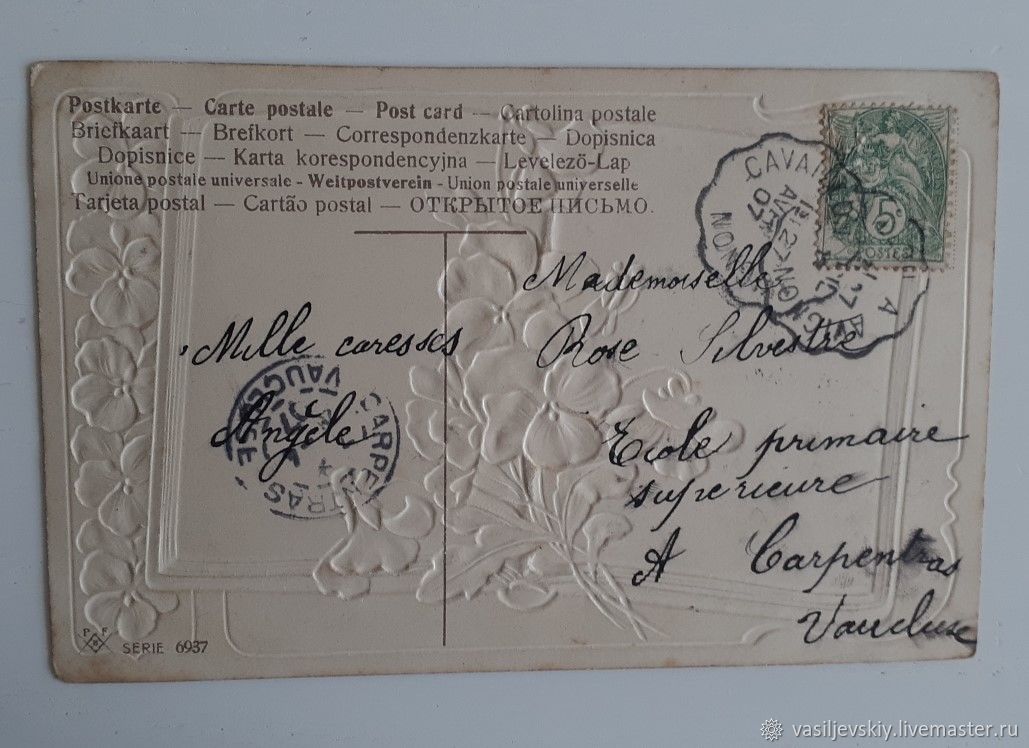 Postkarte — Carte postale — Post card — Cartolina postale
Briefkaart — Brefkort — Correspondenzkarte — Dopisnica
Dopisnice — Karta korespondencyjna — Levelező-Lap
Unione postale universale - Weltpostverein - Union postale universelle
Tarjeta postal — Cartão postal — ОТКРЫТОЕ ПИСЬМО.
5c
POSTES
CAVAILLON
A
07
Mademoiselle
Mille caresses
Rose Silvestre
Angèle
CARPENTRAS
VAUCLUSE
Ecole primaire
supérieure
A Carpentras
Vaucluse
PFB
SERIE 6937
vasiljevskiy.livemaster.ru